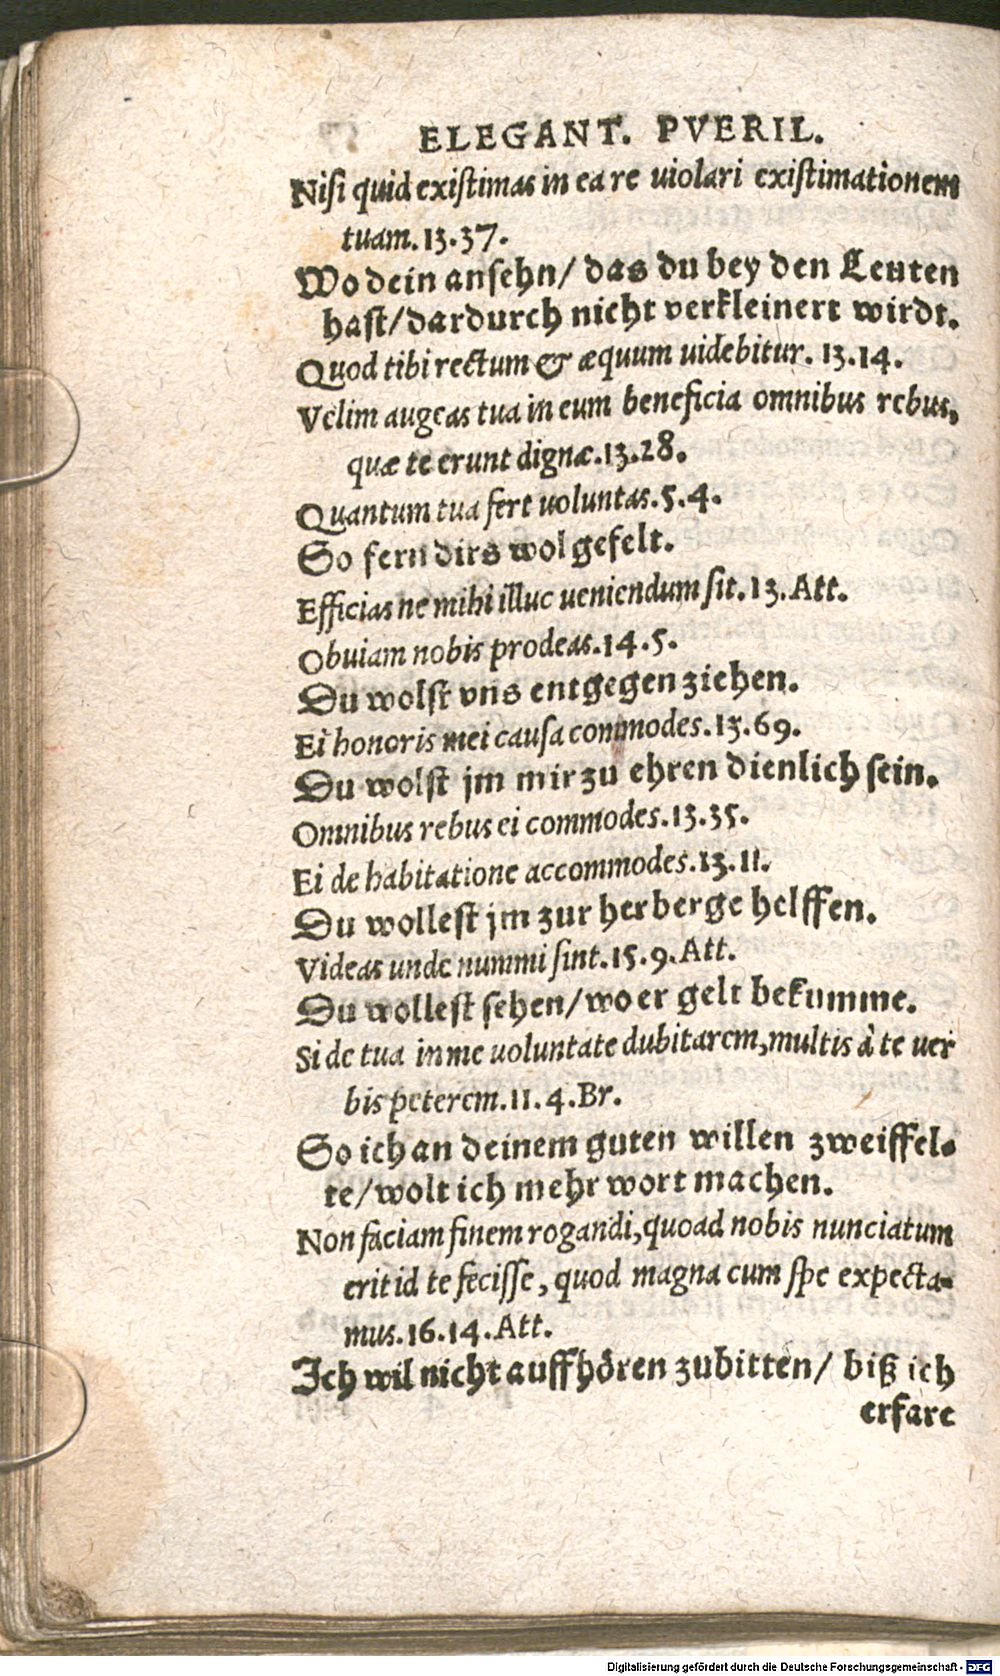 ELEGANT. PVERIL.
Nisi quid existimas in ea re uiolari existimationem
tuam. 13.37.
Wo dein ansehn/ das du bey den Leuten
hast/dardurch nicht verkleinert wirdt.
Quod tibi rectum & æquum uidebitur. 13.14.
Velim augeas tua in eum beneficia omnibus rebus,
quæ te erunt dignæ. 13.28.
Quantum tua fert uoluntas. 5.4.
So fern dirs wol gefelt.
Efficias ne mihi illuc ueniendum sit. 13. Att.
Obuiam nobis prodeas. 14.5.
Du wolst vns entgegen ziehen.
Ei honoris mei causa commodes. 13.69.
Du wolst jm mir zu ehren dienlich sein.
Omnibus rebus ei commodes. 13.35.
Ei de habitatione accommodes. 13.11.
Du wollest jm zur herberge helffen.
Videas unde nummi sint. 15.9. Att.
Du wollest sehen/wo er gelt bekumme.
Si de tua in me uoluntate dubitarem, multis à te uer
bis peterem. 11.4. Br.
So ich an deinem guten willen zweiffel-
te/wolt ich mehr wort machen.
Non faciam finem rogandi, quoad nobis nunciatum
erit id te fecisse, quod magna cum spe expecta-
mus. 16.14. Att.
Ich wil nicht auffhören zubitten/ biß ich
erfare
Digitalisierung gefördert durch die Deutsche Forschungsgemeinschaft - DFG